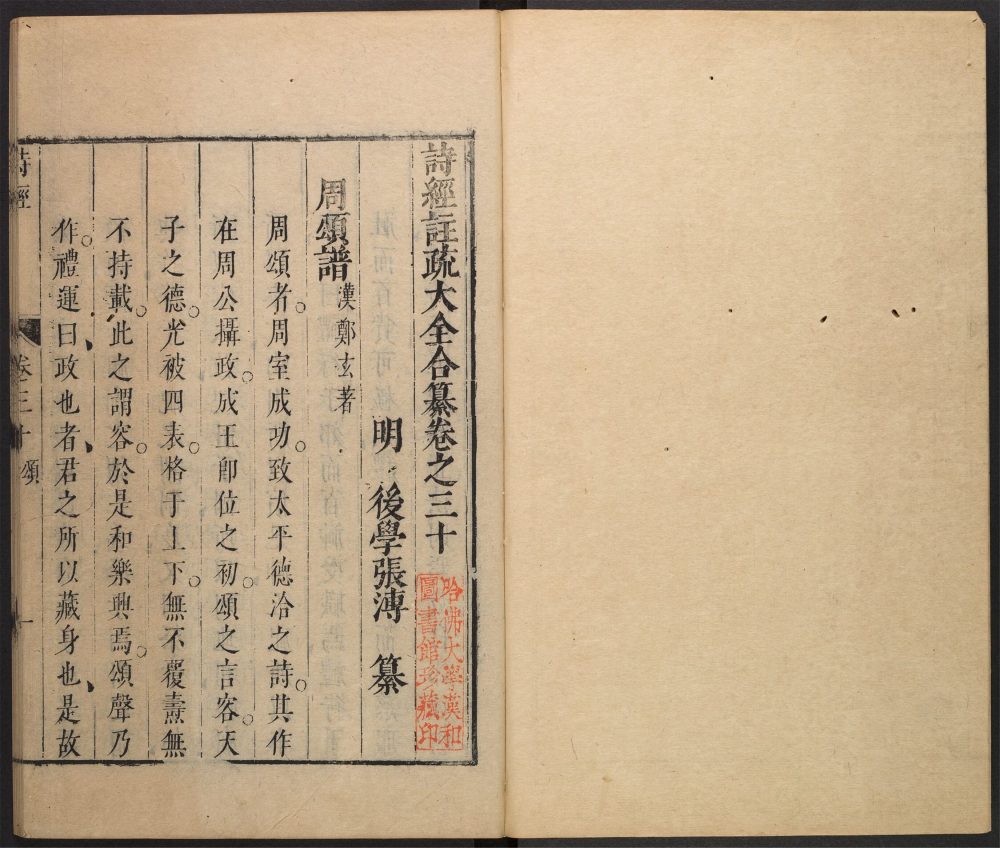 詩經註疏大全合纂卷之三十
哈佛大學漢和
圖書館珍藏印
明 後學張溥 纂
周頌譜 漢鄭玄著
周頌者。周室成功。致太平德洽之詩。其作
在周公攝政。成王卽位之初。頌之言容。天
子之德。光被四表。格于上下。無不覆燾。無
不持載。此之謂容。於是和樂興焉。頌聲乃
作。禮運曰、政也者、君之所以藏身也、是故
詩經 卷三十 頌 一